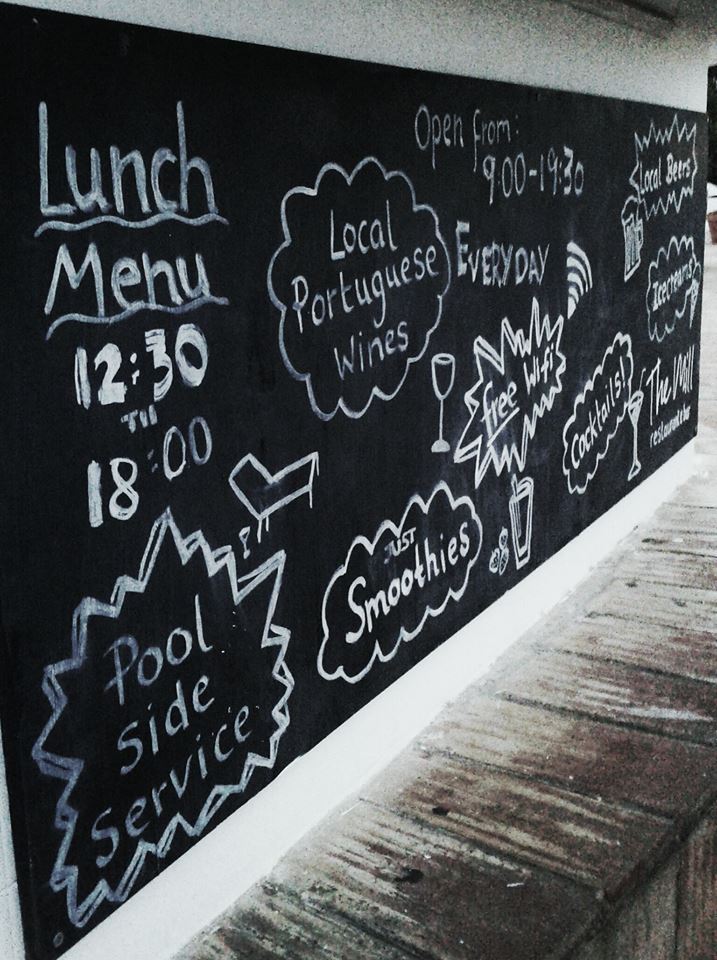 Lunch
Menu
12:30
Till
18:00
Pool
Side
Service
Local
Portuguese
Wines
Open from:
9.00-19:30
EVERYDAY
free Wifi
JUST
Smoothies
Local Beers
Icecreams
Cocktails!
The Mill
restaurant & bar